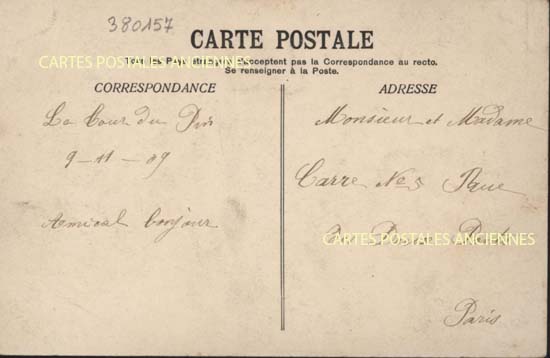 380157
CARTE POSTALE
Tous les Pays étrangers n'acceptent pas la Correspondance au recto.
Se renseigner à la Poste.
CARTES POSTALES ANCIENNES
CORRESPONDANCE
La Tour du Pin
9-11-09
Amical bonjour
ADRESSE
Monsieur et Madame
Carre No 5 Rue
CARTES POSTALES ANCIENNES
Paris